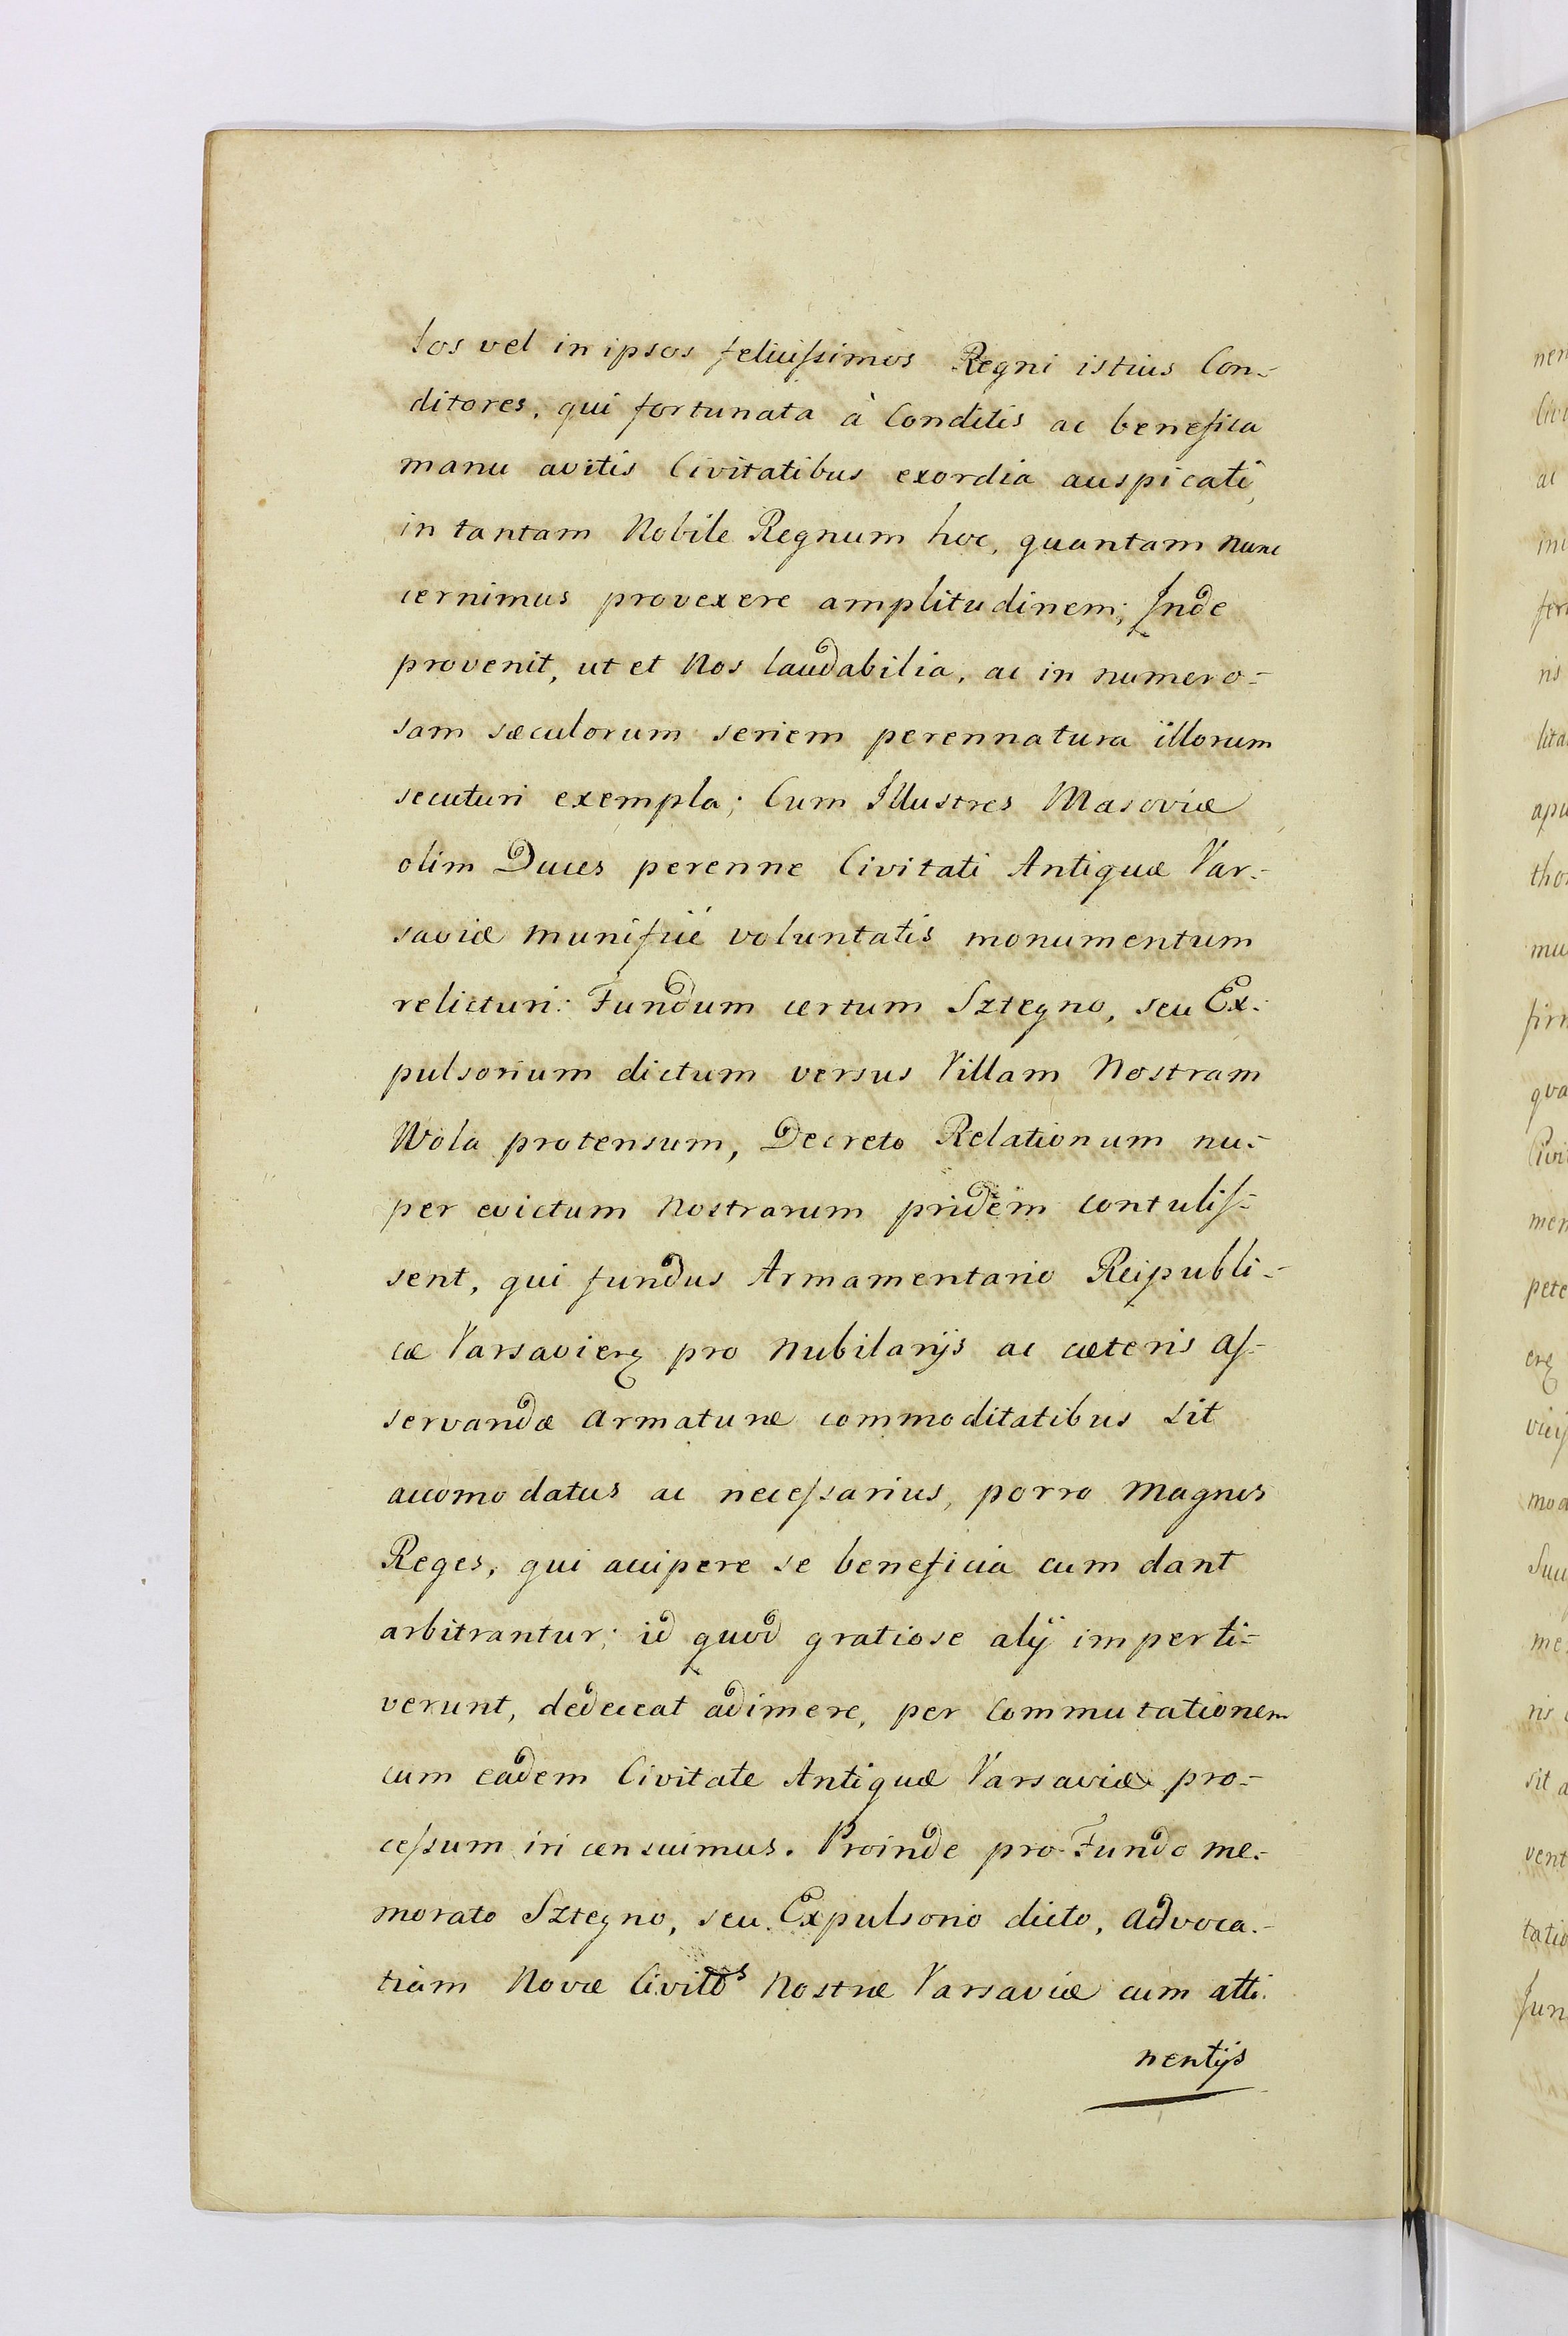 los vel in ipsos felicißimos Regni istius Con-
ditores, qui fortunata à Conditis ac benefica
manu avitis Civitatibus exordia auspicati,
in tantam Nobile Regnum hoc, quantam nunc
cernimus provexere amplitudinem; Inde
provenit, ut et Nos laudabilia, ac in numero-
sam sæculorum seriem perennatura illorum
secuturi exempla; Cum Illustres Masoviæ
olim Duces perenne Civitati Antiquæ Var-
saviæ munificæ voluntatis monumentum
relicturi: Fundum certum Sztegno, seu Ex-
pulsorium dictum versus Villam Nostram
Wola protensum, Decreto Relationum nu-
per evictum Nostrarum pridem contulis-
sent, qui fundus Armamentario Reipubli-
cæ Varsavien pro Nubilarijs ac cæteris as-
servandæ Armaturæ commoditatibus sit
accomodatus ac neceßarius, porro Magnos
Reges, qui accipere se beneficia cum dant
arbitrantur; id quod gratiose alij imperti-
verunt, dedeceat adimere, per Commutationem
cum eadem Civitate Antiquæ Varsaviæ pro-
ceßum iri censuimus. Proinde pro Fundo me-
morato Sztegno, seu Expulsorio dicto, Advoca-
tiam Novæ Civitts Nostræ Varsaviæ cum atti-
nentijs
nen
ac
ris
lita
apu
tho
mu
firm
qva
Civi
men
pete
moa
me
ris
sit a
vent
tatio